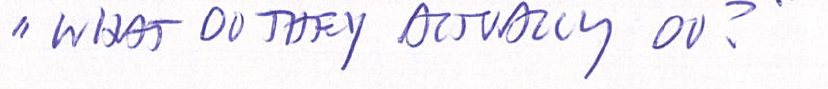 "WHAT DO THEY ACTUALLY DO?"